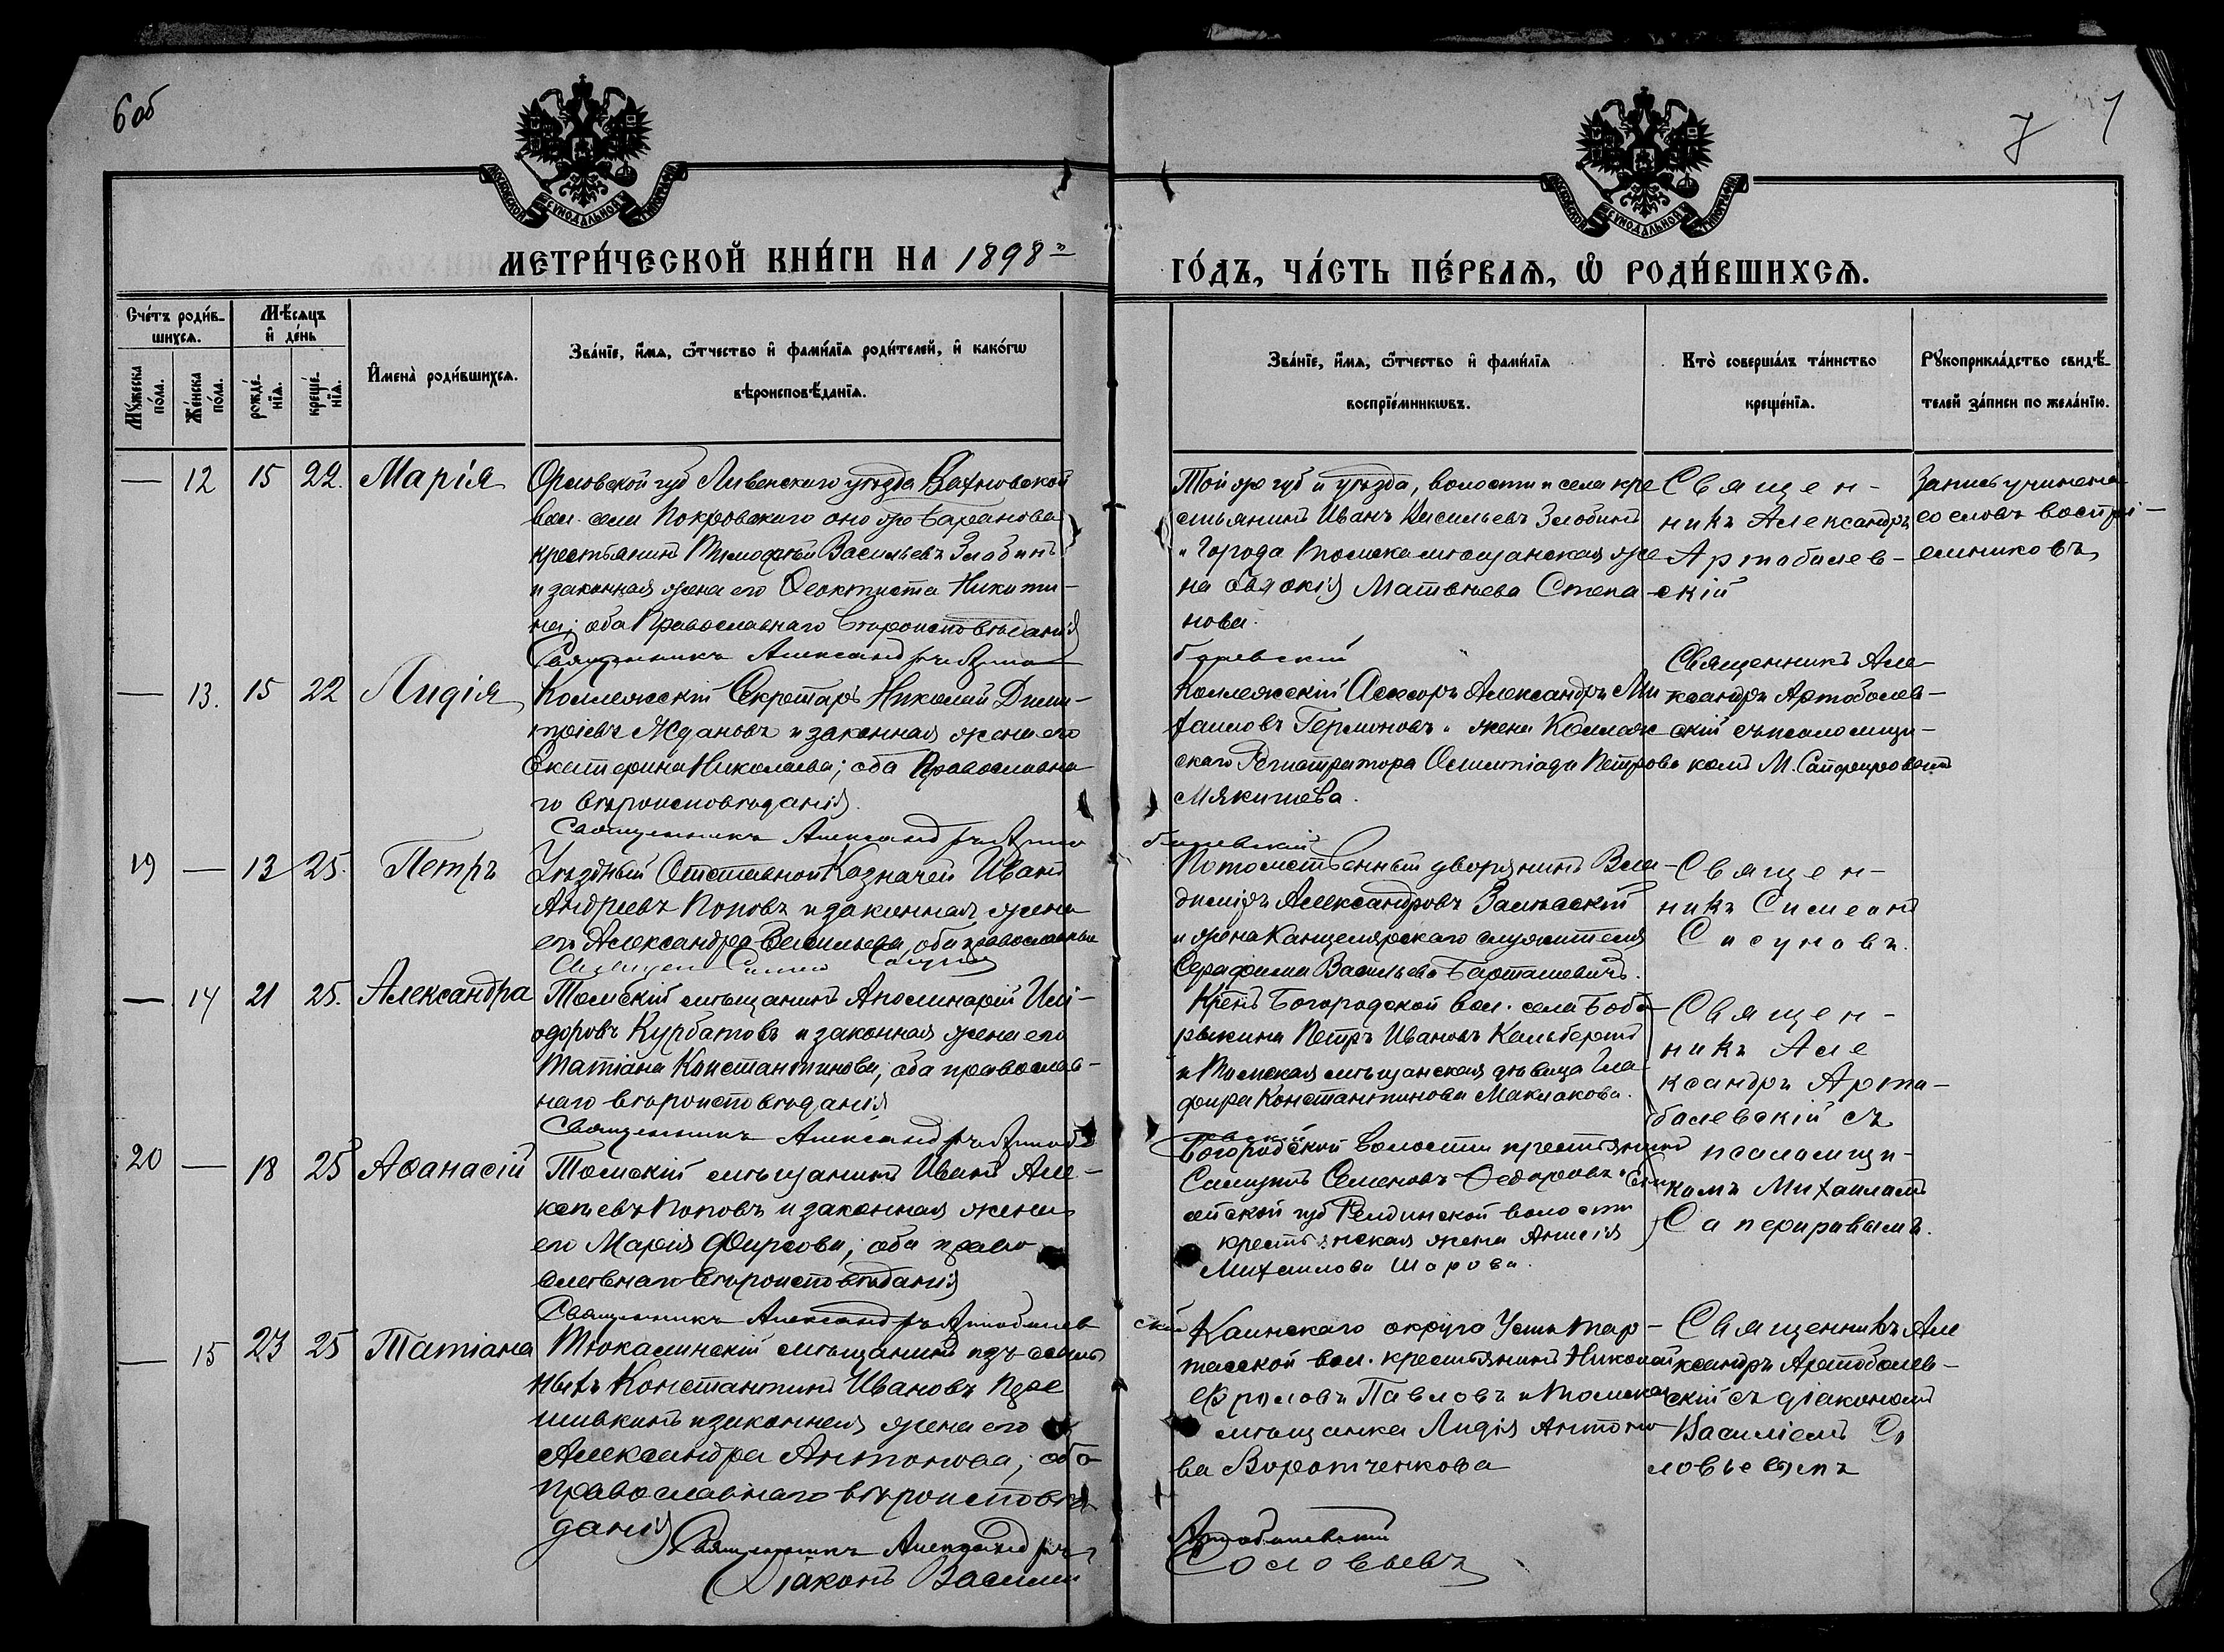 6 об
7
МЕТРИ́ЧЕСКОЙ КНИ́ГИ НА 1898
ГО́ДЪ, ЧА́СТЬ ПЕ́РВАѦ, Ѡ РОДИ́ВШИХСѦ.
Сче́тъ роди́в-
шихсѧ.
Мѣ́сѧцъ
и҆ де́нь
Мꙋ́жеска
по́ла.
Же́нска
по́ла.
рожде́-
нїѧ.
креще́-
нїѧ.
И҆мена̀ роди́вшихсѧ.
Зва́нїе, и҆́мѧ, ѻ҆́тчество и҆ фами́лїѧ роди́телей, и҆ како́гѡ
вѣроисповѣ́данїѧ.
Зва́нїе, и҆́мѧ, ѻ҆́тчество и҆ фами́лїѧ
воспрїе́мникѡвъ.
Кто̀ соверша́лъ та́инство
креще́нїѧ.
Рꙋкоприкла́дство свидѣ́-
телей за́писи по жела́нїю.
— 12 15 22. Марія
Орловской губ Ливенскаго уѣзда Вахновской
вол. села Покровскаго оно же Баранова
крестьянинъ Тимофей Васильевъ Злобинъ
и законная жена его Ѳеоктиста Никити-
на; оба Православнаго Вѣроисповѣданія
Священникъ Александръ Арто
Той же губ и уѣзда, волости и села кре
стьянинъ Иванъ Васильевъ Злобинъ
и города Томска мѣщанская же
на Евдокія Матвѣева Степа
нова.
болевскій
Священ-
никъ Александръ
Артоболев-
скій
Запись учинена
со словъ воспрі-
емниковъ
— 13. 15 22 Лидія
Коллежскій Секретарь Николай Дими-
тріевъ Ждановъ и законная жена его
Екатерина Николаева; оба Православна
го вѣроисповѣданія.
Священникъ Александръ Арто
Коллежскій Асесоръ Александръ Ми
хаиловъ Гермоновъ и жена Коллеж
скаго Регистратора Олимпіада Петрова
Мякишева.
болевскій
Священникъ Але-
ксандръ Артоболев-
скій съ псаломщи-
комъ М. Сапфировымъ
19 — 13 25. Петръ
Уѣздный Отставной Казначей Иванъ
Андреевъ Поповъ и законная жена
его Александра Васильева, оба православные
Священ Симео Сосунов
Потомственный дворянинъ Вла-
димиръ Александровъ Залѣсскій
и жена Канцелярскаго служителя
Серафима Васильева Барташевичъ.
Священ-
никъ Симеонъ
Сосуновъ.
— 14 21 25. Александра
Томскій мѣщанинъ Аполинарій Илі-
одоровъ Курбатовъ и законная жена его
Татіана Константинова, оба православ-
наго вѣроисповѣданія
Священникъ Александръ Артобо
Крен Богородской вол. села Бобо
рыкина Петръ Ивановъ Кальбергъ
и Томская мѣщанская дѣвица Гла-
фира Константинова Маклакова.
левскій
Священ-
никъ Але
ксандръ Арто-
болевскій съ
псаломщи-
комъ Михаиломъ
Сапфировымъ.
20 — 18 25 Аѳанасій
Томскій мѣщанинъ Иванъ Але-
ксѣевъ Поповъ и законная жена
его Марія Фирсова; оба право
славнаго вѣроисповѣданія
Священникъ Александръ Артоболев
Богородской Волости крестьянинъ
Самуилъ Семеновъ Федоровъ и
губ волости
крестьянская жена Анисія
Михаилова Шарова.
скій
— 15 23 25 Татіана
Тюкалинскій мѣщанинъ изъ ссыль
ныхъ Константинъ Ивановъ
и законная жена его
Александра Антонова; оба
православнаго вѣроисповѣ
данія
Священникъ Александръ
Діаконъ Василій
Каинскаго округа Усть Тар-
тасской вол. крестьянинъ Николай
Фроловъ Павловъ и Томская
мѣщанка Лидія Антоно
ва Воротченкова
Артоболевскій
Соловьевъ
Священникъ Але
ксандръ Артоболев-
скій съ діакономъ
Василіемъ Со
ловьевымъ